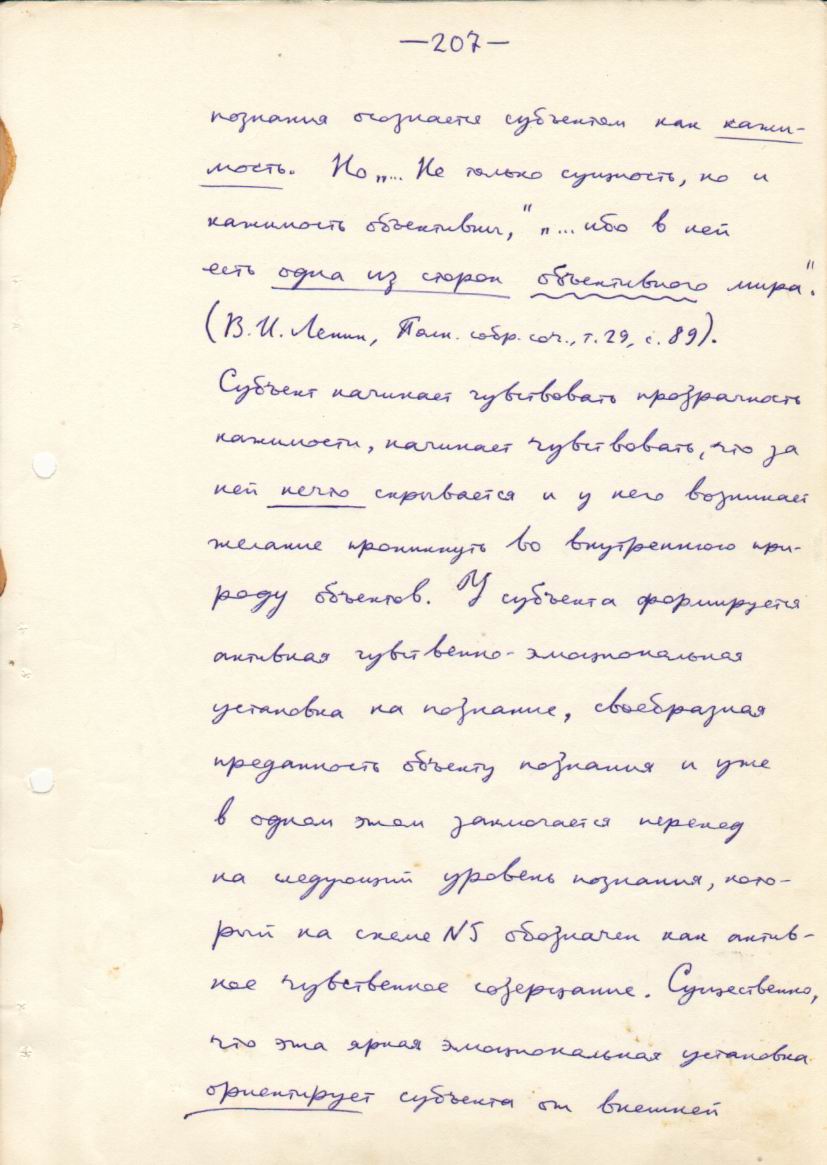 —207—
познания осознается субъектом как кажи-
мость. Но „... Не только сущность, но и
кажимость объективны,“ „... ибо в ней
есть одна из сторон объективного мира“.
(В.И. Ленин, Полн. собр. соч., т. 29, с. 89).
Субъект начинает чувствовать прозрачность
кажимости, начинает чувствовать, что за
ней нечто скрывается и у него возникает
желание проникнуть во внутреннюю при-
роду объектов. У субъекта формируется
активная чувственно-эмоциональная
установка на познание, своебразная
преданность объекту познания и уже
в одном этом заключается переход
на следующий уровень познания, кото-
рый на схеме №5 обозначен как актив-
ное чувственное созерцание. Существенно,
что эта яркая эмоциональная установка
ориентирует субъекта от внешней